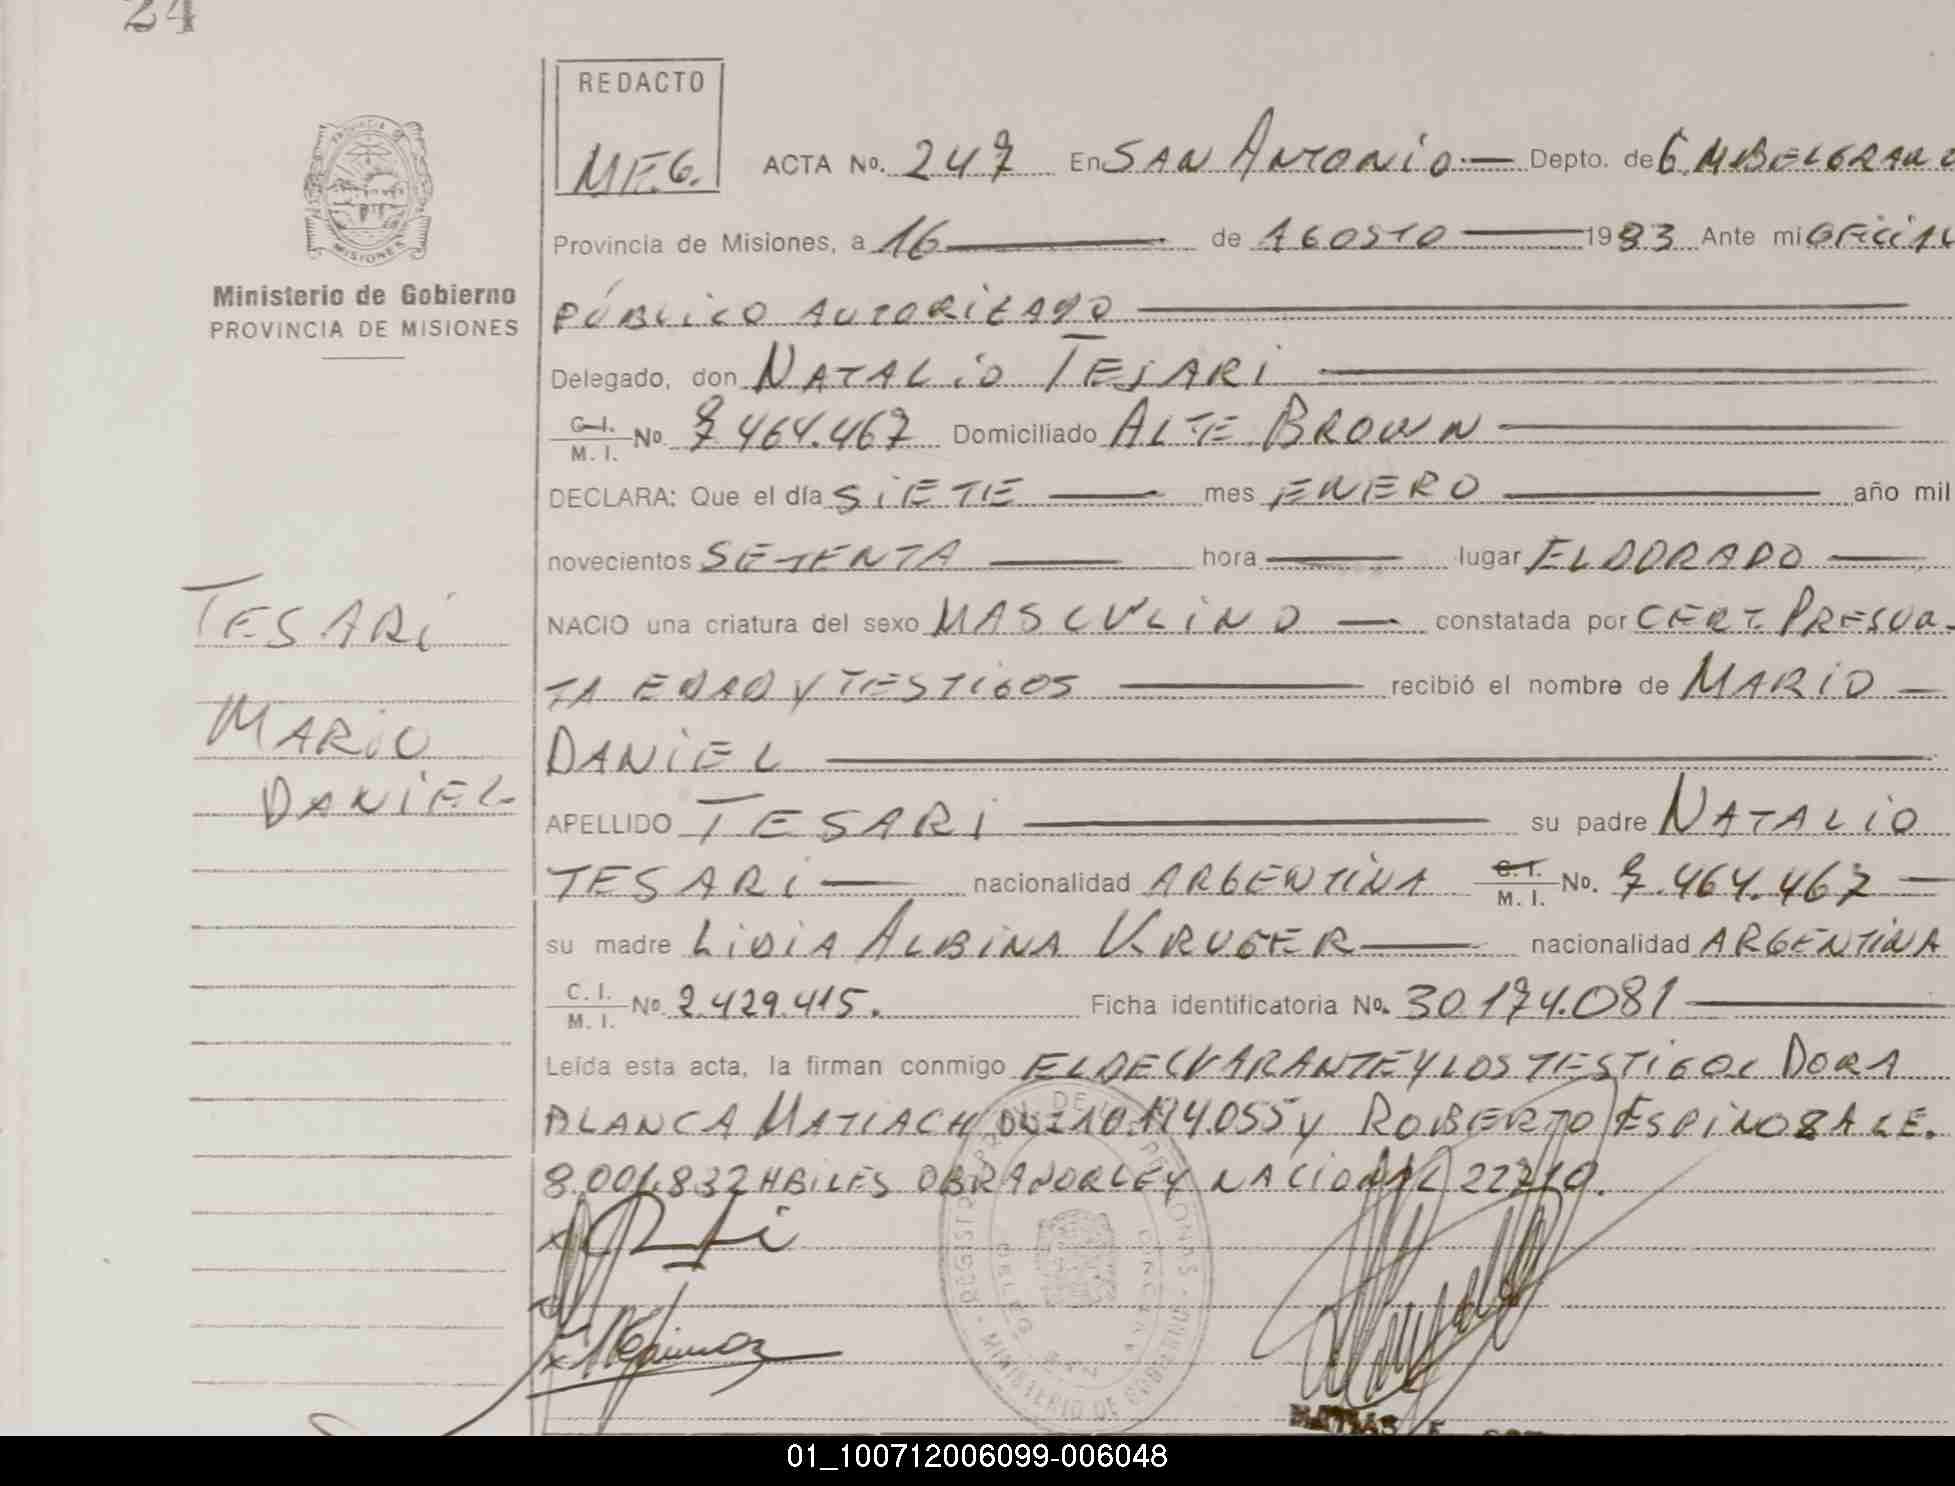 24
REDACTO
M.F.G.
ACTA No. 247 En SAN ANTONIO.— Depto. de G. M. BELGRANO
Provincia de Misiones, a 16 — de AGOSTO — 1983 Ante mi OFICIAL
PÚBLICO AUTORIZADO —
Ministerio de Gobierno
PROVINCIA DE MISIONES
Delegado, don NATALIO TESARI —
C.I. / M.I. No. 7.464.467 Domiciliado ALTE BROWN —
DECLARA: Que el día SIETE — mes ENERO — año mil
novecientos SETENTA — hora — lugar ELDORADO —
TESARI
NACIO una criatura del sexo MASCULINO — constatada por CERT. PRESUN-
TA EDAD Y TESTIGOS — recibió el nombre de MARIO —
MARIO
DANIEL —
DANIEL
APELLIDO TESARI — su padre NATALIO
TESARI — nacionalidad ARGENTINA C.I. / M.I. No. 7.464.467 —
su madre LIDIA ALBINA KRUGER — nacionalidad ARGENTINA
C.I. / M.I. No. 2.429.415. Ficha identificatoria No. 30.174.081 —
Leída esta acta, la firman conmigo EL DECLARANTE Y LOS TESTIGOS DORA
BLANCA MATIACH DNI 10.174.055 y ROBERTO ESPINOZA LE.
8.001.832 HBILES OBRANOR LEY NACIONAL 22210.
REGISTRO PROV. DE LAS PERSONAS
MINISTERIO DE GOBIERNO
01_100712006099-006048